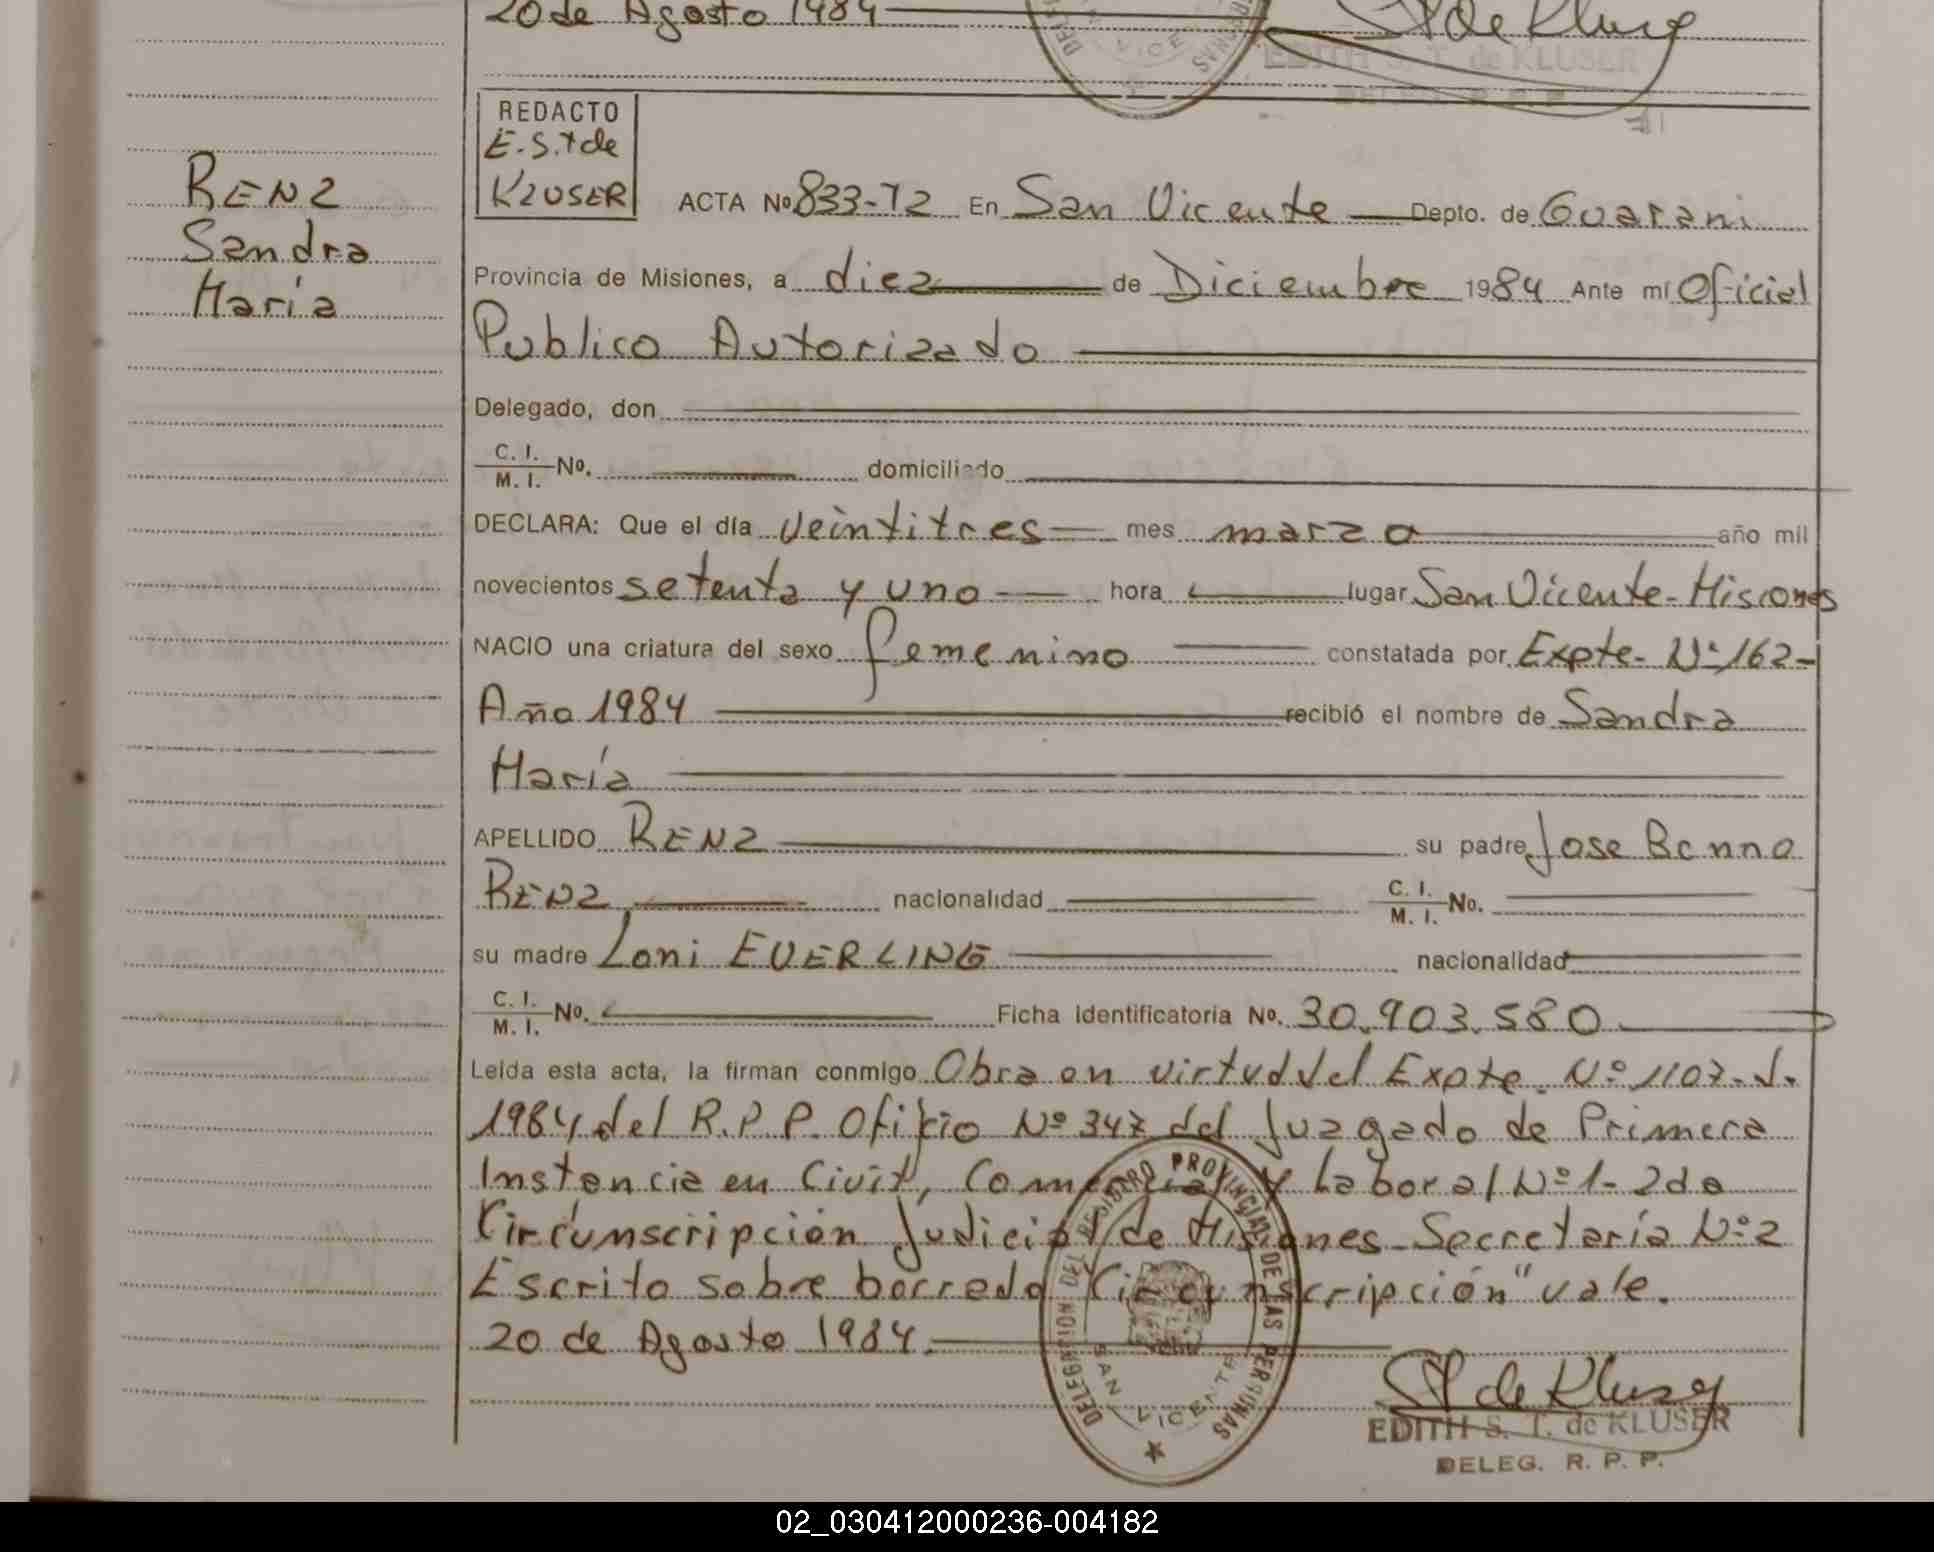 20 de Agosto 1984
EDITH S. T. de KLUSER
REDACTO
E.S.T de
KLUSER
RENZ
Sandra
María
ACTA Nº 833-T2 En San Vicente Depto. de Guarani
Provincia de Misiones, a diez de Diciembre 1984 Ante mí Oficial
Publico Autorizado
Delegado, don
C. I.
M. I. Nº. domiciliado
DECLARA: Que el día veintitres mes marzo año mil
novecientos setenta y uno hora lugar San Vicente-Misiones
NACIO una criatura del sexo femenino constatada por Expte. Nº 162-
Año 1984 recibió el nombre de Sandra
María
APELLIDO RENZ su padre Jose Benno
RENZ nacionalidad C. I.
M. I. No.
su madre Loni EVERLING nacionalidad
C. I.
M. I. Nº. Ficha Identificatoria Nº. 30.903.580
Leída esta acta, la firman conmigo Obra en virtud del Expte. Nº 1107-J-
1984 del R.P.P. Oficio Nº 347 del Juzgado de Primera
Instancia en Civil, Comercial y Laboral Nº 1- 2da
Circunscripción Judicial de Misiones-Secretaría Nº 2
Escrito sobre borrado "Circunscripción" vale.
20 de Agosto 1984.
DELEGACION DEL REGISTRO PROVINCIAL DE LAS PERSONAS
SAN VICENTE
EDITH S. T. de KLUSER
DELEG. R. P. P.
02_030412000236-004182